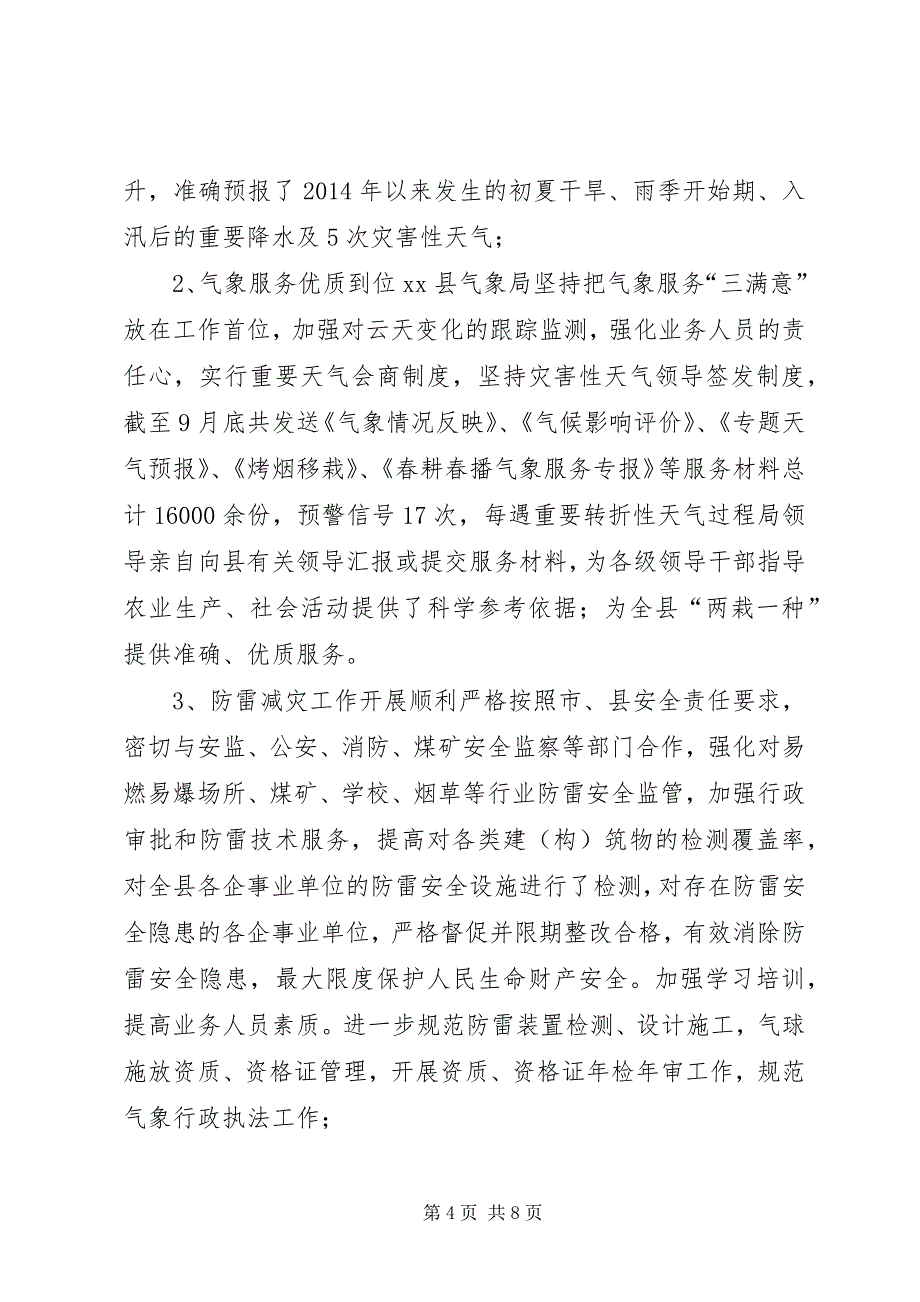 升，准确预报了 2014 年以来发生的初夏干旱、雨季开始期、入
汛后的重要降水及 5 次灾害性天气；
2、气象服务优质到位 xx 县气象局坚持把气象服务“三满意”
放在工作首位，加强对云天变化的跟踪监测，强化业务人员的责
任心，实行重要天气会商制度，坚持灾害性天气领导签发制度，
截至 9 月底共发送《气象情况反映》、《气候影响评价》、《专题天
气预报》、《烤烟移栽》、《春耕春播气象服务专报》等服务材料总
计 16000 余份，预警信号 17 次，每遇重要转折性天气过程局领
导亲自向县有关领导汇报或提交服务材料，为各级领导干部指导
农业生产、社会活动提供了科学参考依据；为全县“两栽一种”
提供准确、优质服务。
3、防雷减灾工作开展顺利严格按照市、县安全责任要求，
密切与安监、公安、消防、煤矿安全监察等部门合作，强化对易
燃易爆场所、煤矿、学校、烟草等行业防雷安全监管，加强行政
审批和防雷技术服务，提高对各类建（构）筑物的检测覆盖率，
对全县各企事业单位的防雷安全设施进行了检测，对存在防雷安
全隐患的各企事业单位，严格督促并限期整改合格，有效消除防
雷安全隐患，最大限度保护人民生命财产安全。加强学习培训，
提高业务人员素质。进一步规范防雷装置检测、设计施工，气球
施放资质、资格证管理，开展资质、资格证年检年审工作，规范
气象行政执法工作；
第 4 页 共 8 页